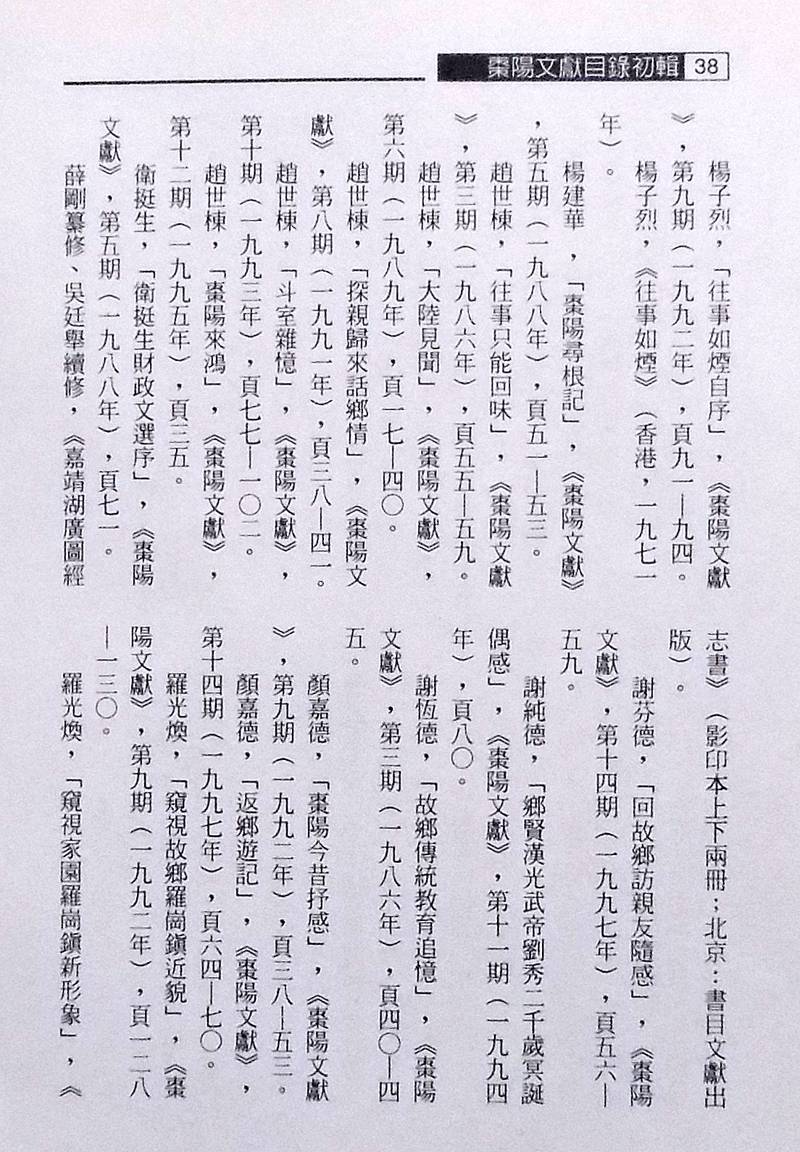 棗陽文獻目錄初輯 38
楊子烈，「往事如煙自序」，《棗陽文獻
》，第九期（一九九二年），頁九一—九四。
楊子烈，《往事如煙》（香港，一九七一
年）。
楊建華，「棗陽尋根記」，《棗陽文獻》
，第五期（一九八八年），頁五一—五三。
趙世棟，「往事只能回味」，《棗陽文獻
》，第三期（一九八六年），頁五五—五九。
趙世棟，「大陸見聞」，《棗陽文獻》，
第六期（一九八九年），頁一七—四〇。
趙世棟，「探親歸來話鄉情」，《棗陽文
獻》，第八期（一九九一年），頁三八—四一。
趙世棟，「斗室雜憶」，《棗陽文獻》，
第十期（一九九三年），頁七七—一〇二。
趙世棟，「棗陽來鴻」，《棗陽文獻》，
第十二期（一九九五年），頁三五。
衛挺生，「衛挺生財政文選序」，《棗陽
文獻》，第五期（一九八八年），頁七一。
薛剛纂修、吳廷舉續修，《嘉靖湖廣圖經
志書》（影印本上下兩冊；北京：書目文獻出
版）。
謝芬德，「回故鄉訪親友隨感」，《棗陽
文獻》，第十四期（一九九七年），頁五六—
五九。
謝純德，「鄉賢漢光武帝劉秀二千歲冥誕
偶感」，《棗陽文獻》，第十一期（一九九四
年），頁八〇。
謝恆德，「故鄉傳統教育追憶」，《棗陽
文獻》，第三期（一九八六年），頁四〇—四
五。
顏嘉德，「棗陽今昔抒感」，《棗陽文獻
》，第九期（一九九二年），頁三八—五三。
顏嘉德，「返鄉遊記」，《棗陽文獻》，
第十四期（一九九七年），頁六四—七〇。
羅光煥，「窺視故鄉羅崗鎮近貌」，《棗
陽文獻》，第九期（一九九二年），頁一二八
—一三〇。
羅光煥，「窺視家園羅崗鎮新形象」，《